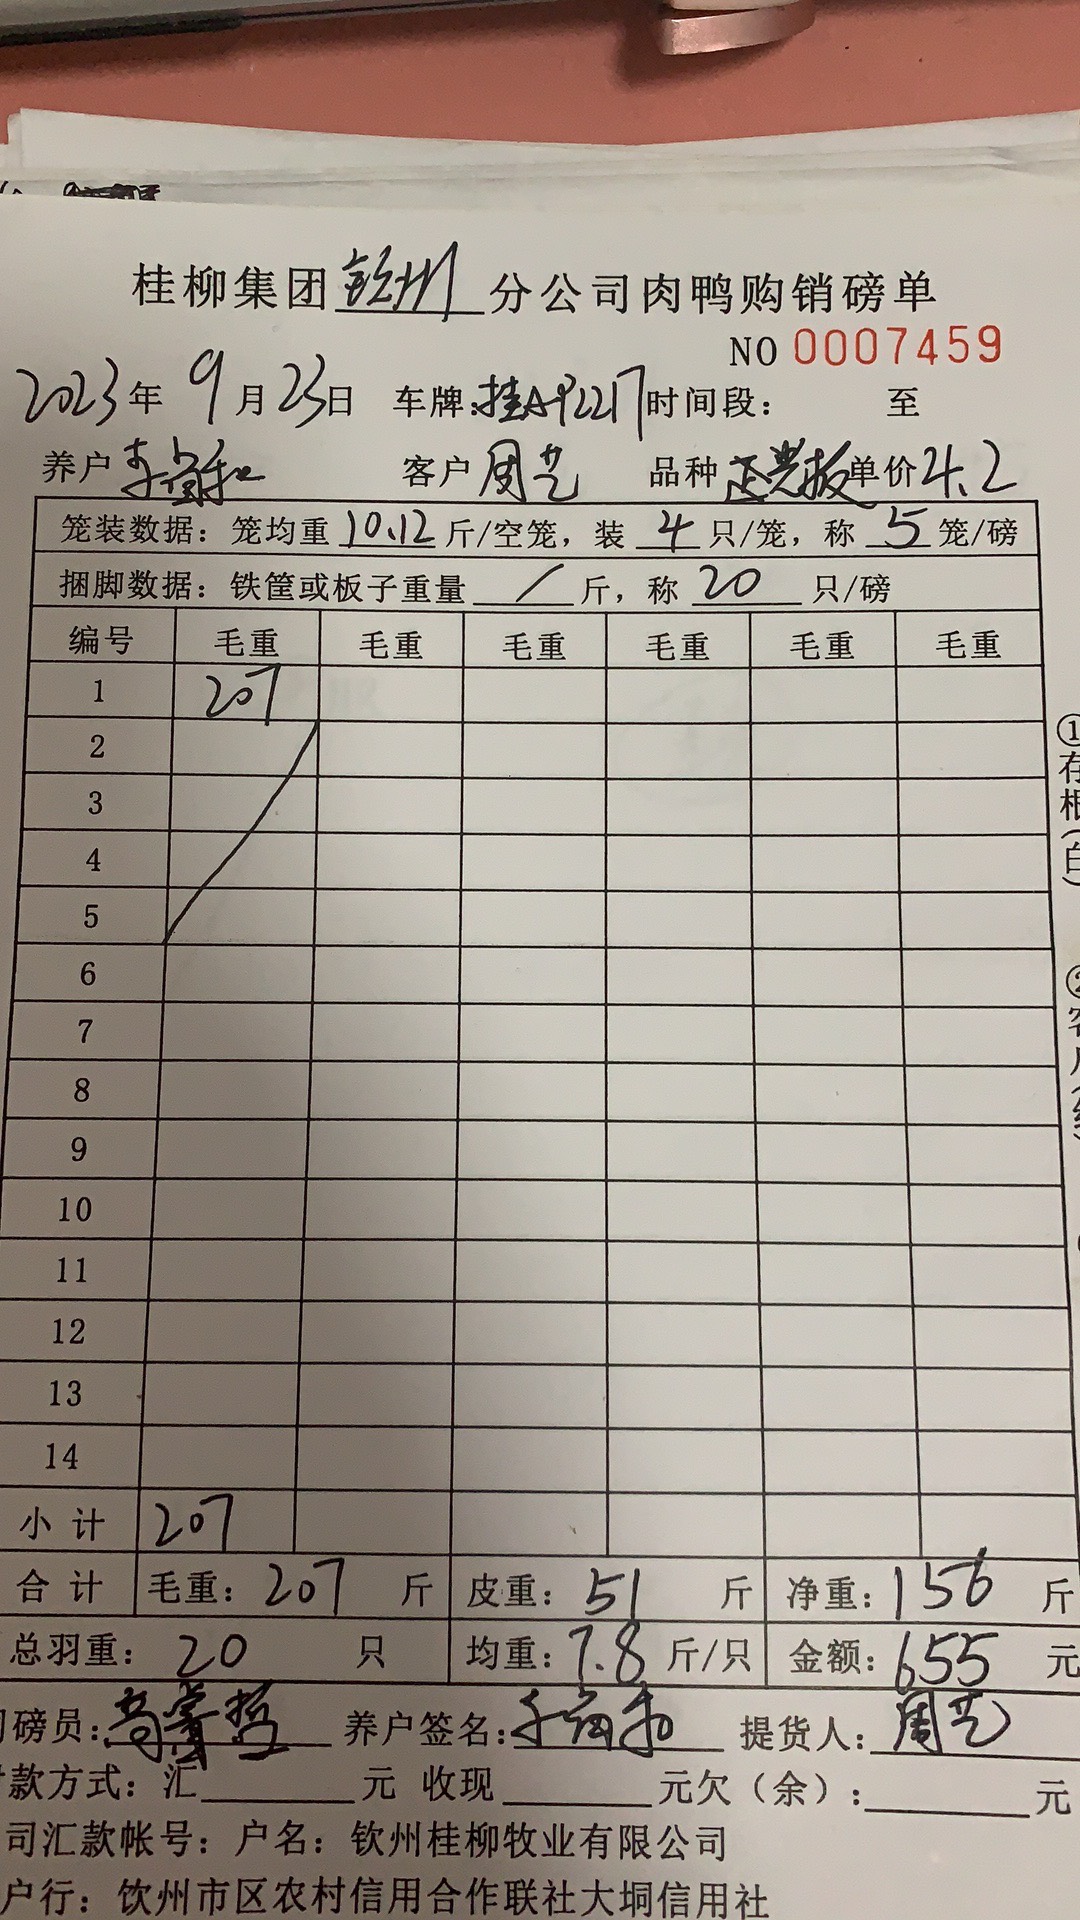 桂柳集团钦州分公司肉鸭购销磅单
NO 0007459
2023年 9月23日 车牌:桂A92217时间段: 至
养户 客户 周艺 品种 单价4.2
笼装数据:笼均重 10.12 斤/空笼,装 4 只/笼,称 5 笼/磅
捆脚数据:铁筐或板子重量 / 斤,称 20 只/磅
编号 毛重 毛重 毛重 毛重 毛重 毛重
1 207
2
3
4
5
6
7
8
9
10
11
12
13
14
小计 207
合计 毛重:207 斤 皮重:51 斤 净重:156 斤
总羽重:20 只 均重:7.8 斤/只 金额:655 元
磅员: 养户签名: 提货人:周艺
款方式:汇 元 收现 元欠(余): 元
司汇款帐号:户名:钦州桂柳牧业有限公司
户行:钦州市区农村信用合作联社大垌信用社
①存根(白)
②客户